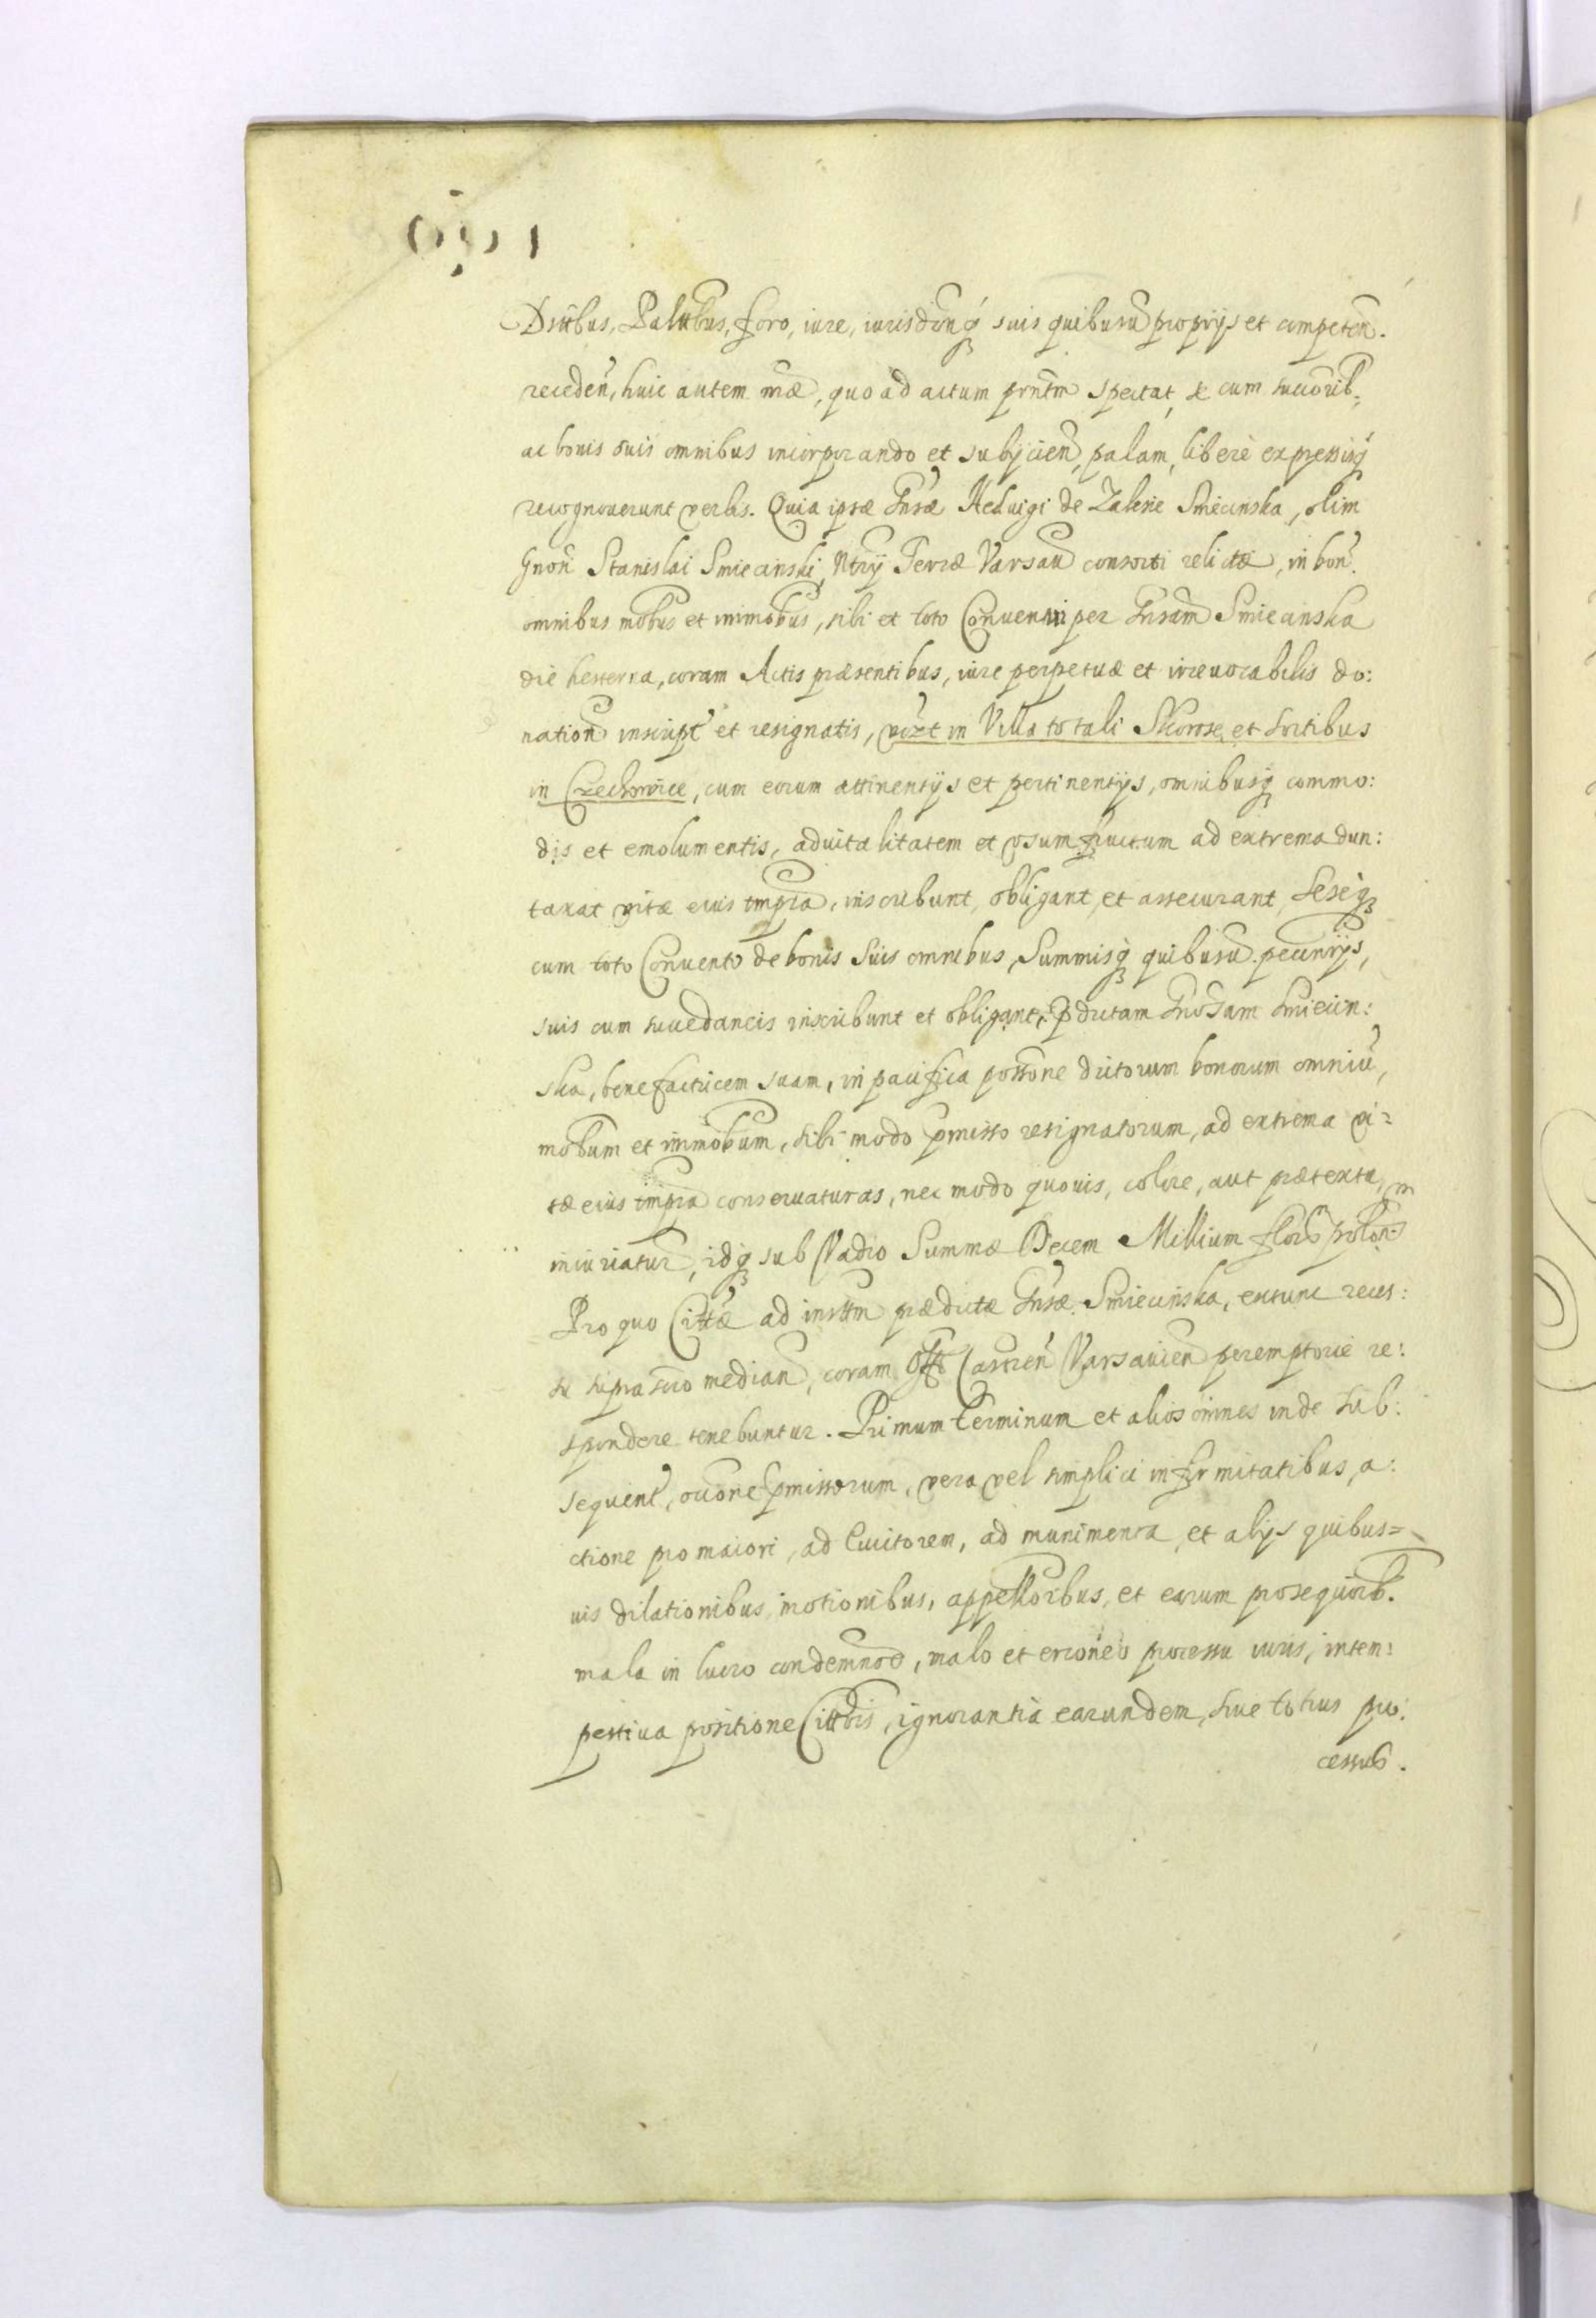 Dsttbus, Palttbus, foro, iure, iurisdōnq̄ suis quibusū proprijs et competen̄.
receden̄, huic autem mæ, quo ad actum prn̄tm spectat, se cum succorib:
ac bonis suis omnibus incorporando et subijcien̄, palam, liberè expressisq̄
recognouerunt verbis. Quia ipsæ Gn̄sæ Heduigi de Zalesie Smiecinska, olim
Gnon̄ Stanislai Smiecinski, Ntrij Terræ Varsau consorti relictæ, in bon̄.
omnibus mobus et immobus, sibi et toto Conuentui per Gnsam Smiecinska
die hesterna, coram Actis præsentibus, iure perpetuæ et irreuocabilis do:
nation̄ inscript et resignatis, vizt in Villa totali Skorosze, et sortibus
in Czechowice, cum eorum attinentijs et pertinentijs, omnibusq̄ commo:
dis et emolumentis, aduitalitatem et vsumfructum ad extrema dun:
taxat vitæ eius tmpra, inscribunt, obligant, et assecurant, seseq̄
cum toto Conuento de bonis suis omnibus, Summisq̄ quibusū pecunijs,
suis cum succedaneis inscribunt et obligant, pdictam Gnosam Smiecin:
ska, benefactricem suam, in pacifica possone dictorum bonorum omniū,
mobum et immobum, sibi modo pmisso resignatorum, ad extrema vi:
tæ eius tmpra conseruaturas, nec modo quouis, colore, aut prætextu, in
iniuriatur̄, idq̄ sub Vadio Summæ Decem Millium flor̄ polon̄
Pro quo Cittæ ad insttm prædictæ Gnsæ Smiecinska, extunc reces:
se supra scro median̄, coram Offo Castren̄ Varsauien̄ peremptorie re:
spondere tenebuntur. Primum terminum et alios omnes inde sub:
sequent̄, occōne pmissorum, vera vel simplici infirmitatibus, a:
ctione pro maiori, ad Euictorem, ad munimenta, et alijs quibus=
uis dilationibus, motionibus, appellorbus, et earum prosequorb.
mala in lucro condemnoe, malo et erroneo processu iuris, intem:
pestiua positione Cittōis, ignorantia earundem, siue totius pro:
cessus.